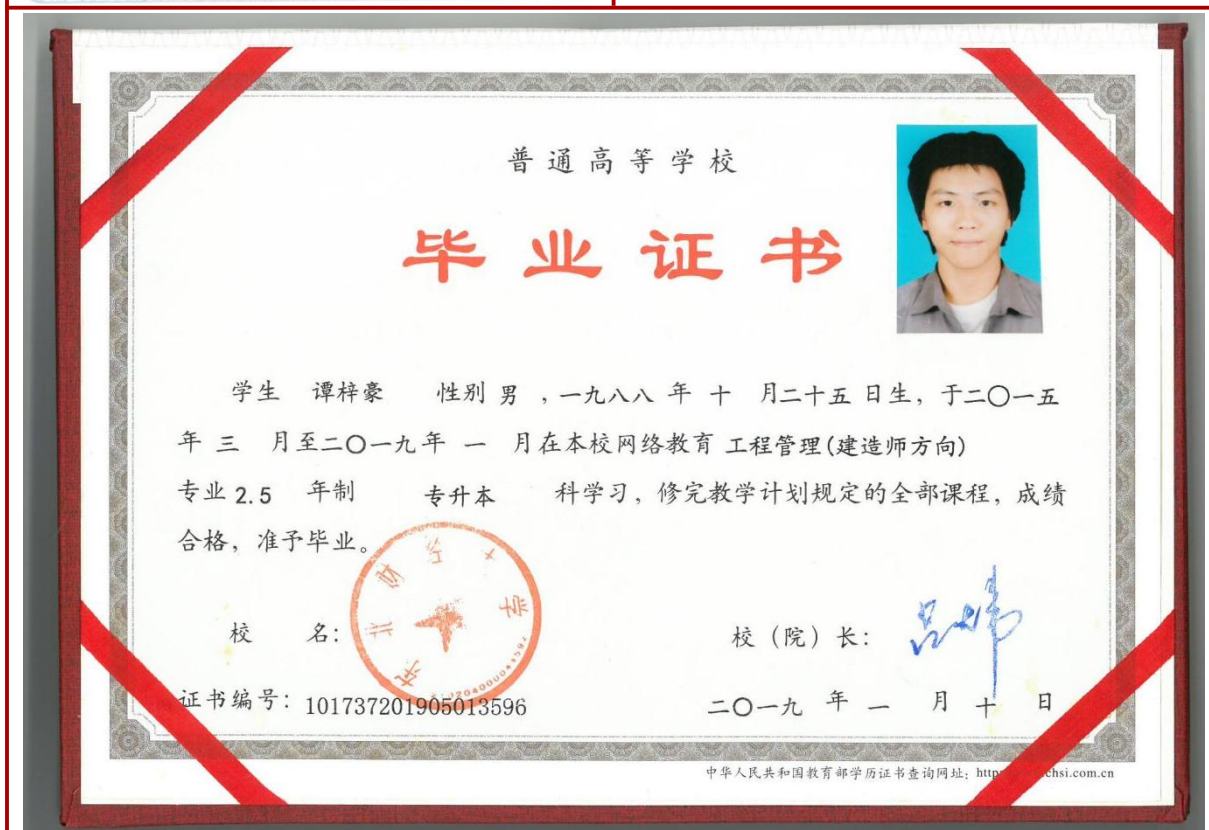 普通高等学校
毕业证书
学生 谭梓豪 性别 男 ，一九八八 年 十 月二十五 日生，于二〇一五
年 三 月至二〇一九年 一 月在本校网络教育 工程管理(建造师方向)
专业 2.5 年制 专升本 科学习，修完教学计划规定的全部课程，成绩
合格，准予毕业。
东北财经大学
校 名：
校（院）长：
证书编号：101737201905013596
二〇一九 年 一 月 十 日
中华人民共和国教育部学历证书查询网址：http chsi.com.cn